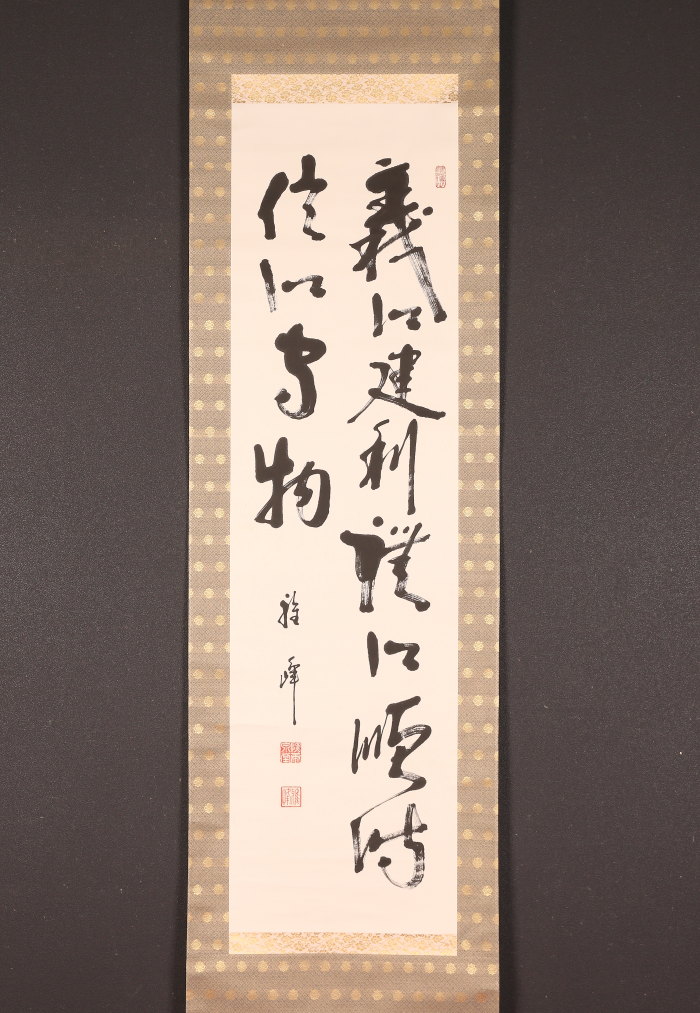 義以建利禮以順時
信以守物
雅峰